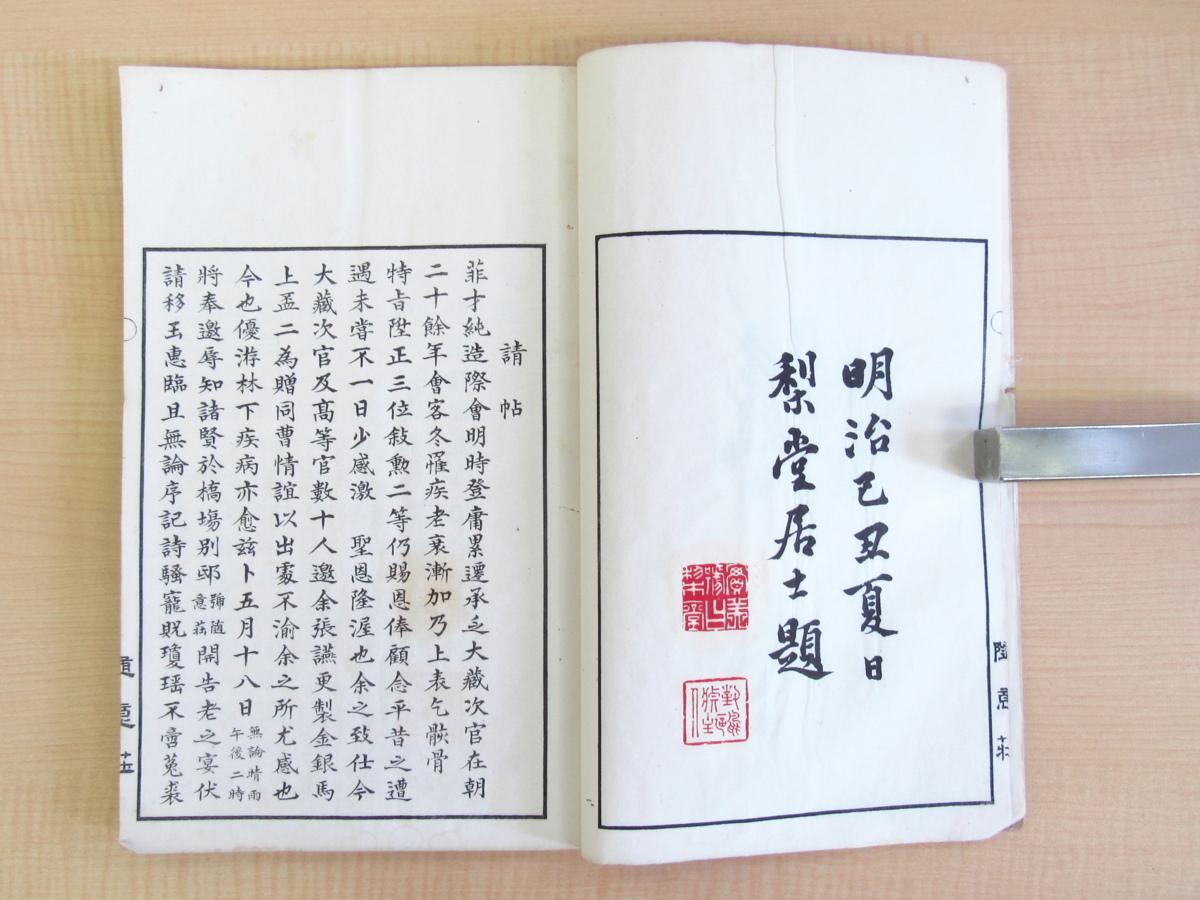 明治己丑夏日
梨堂居士題
請帖
菲才純造際會明時登庸累遷承乏大藏次官在朝
二十餘年會客冬罹疾老衰漸加乃上表乞骸骨
特旨陞正三位敍勲二等仍賜恩俸顧念平昔之遭
遇未嘗不一日少感激　聖恩隆渥也余之致仕今
大藏次官及高等官數十人邀余張讌更製金銀馬
上盃二為贈同曹情誼以出處不渝余之所尤感也
今也優游林下疾病亦愈茲卜五月十八日無論晴雨午後二時
將奉邀辱知諸賢於槁塲別邸號隨意莊開告老之宴伏
請移玉惠臨且無論序記詩騷寵貺瓊瑶不啻菟裘
隨意莊